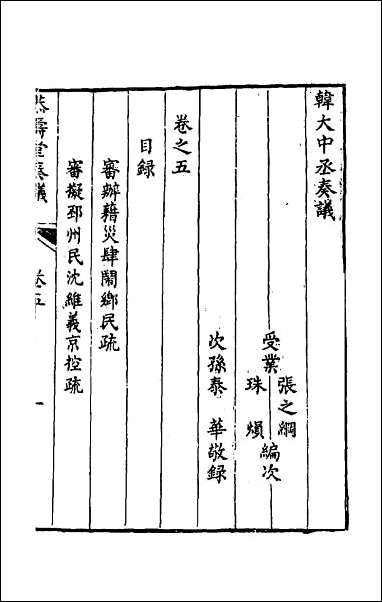 韓大中丞奏議
受業
張之綱
珠熉
編次
次孫泰華敬録
卷之五
目録
審辦藉災肆鬧鄉民疏
審擬邳州民沈維義京控疏
恭壽堂奏議 卷五 一